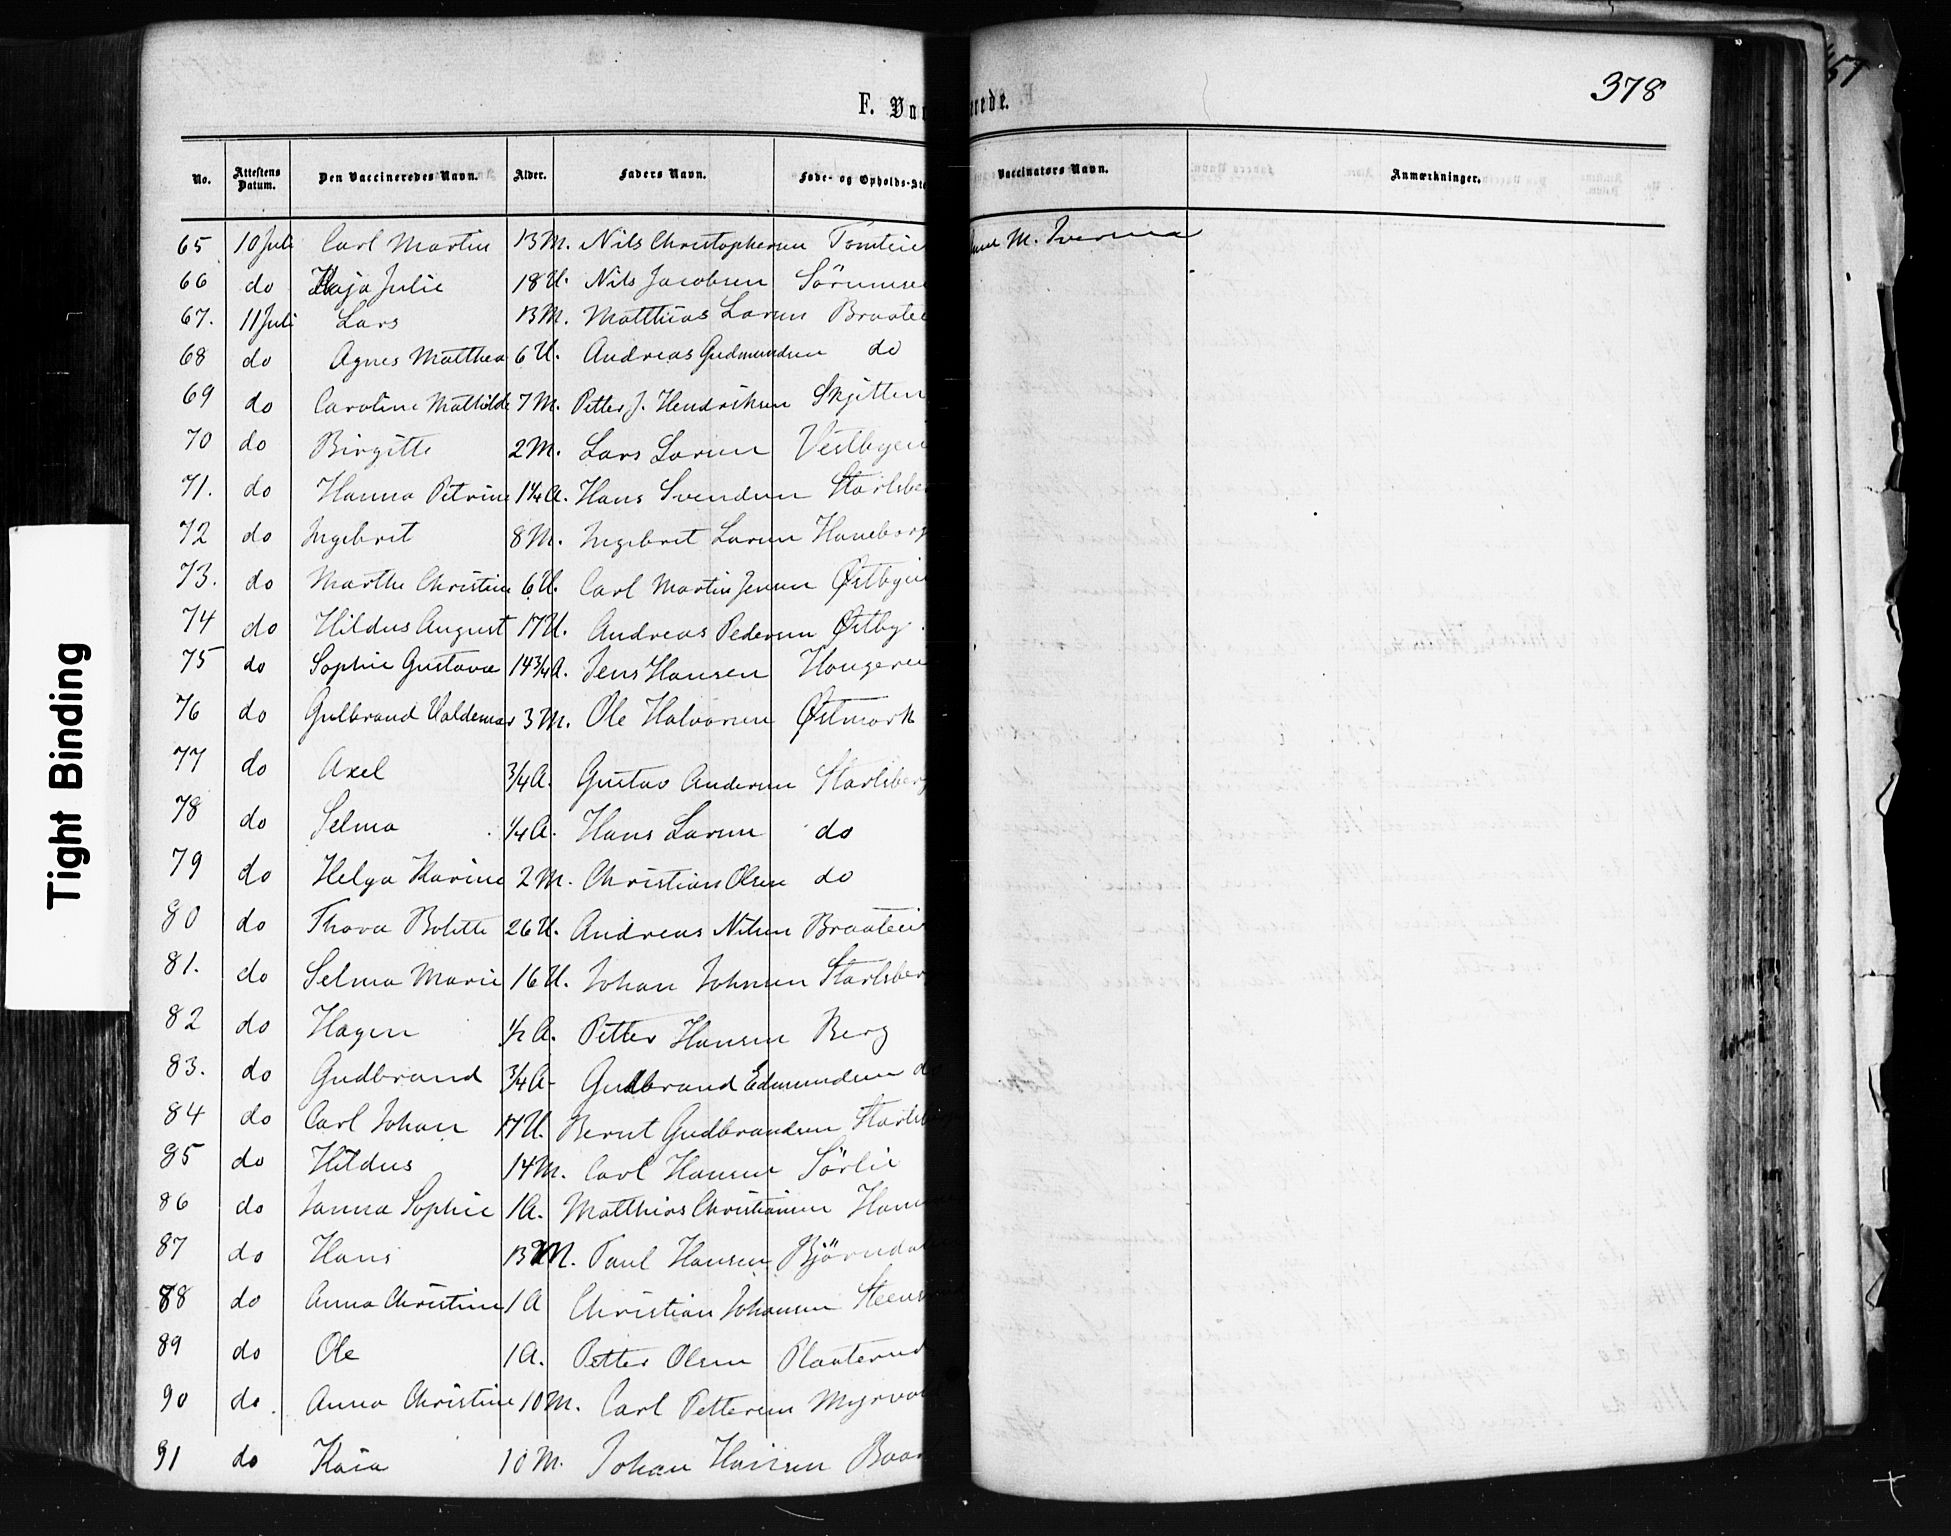 378
F. Vac
erede.
No. Attestens Datum. Den Vaccineredes Navn. Alder. Faders Navn. Føde- og Opholds-Ste Vaccinators Navn. Anmærkninger.
65 10 Juli Carl Martin 13 M. Nils Christophersen Tomtei M. Iversen
66 do Kaja Julie 18 U. Nils Jacobsen Sörums
67. 11 Juli Lars 13 M. Matthias Larsen Braate
68 do Agnes Matthea 6 U. Andreas Gudmundsen do
69 do Caroline Mathilde 7 M. Petter J. Hendriksen Skjitten
70 do Birgitte 2 M. Lars Larsen Vestbyei
71. do Hanna Petrine 1¼ A. Hans Svendsen Starlsbe
72 do Ingebret 8 M. Ingebret Larsen Haneborg
73. do Marthe Christine 6 U. Carl Martin Jensen Østbyei
74 do Hildus August 17 U. Andreas Pedersen Østby
75 do Sophie Gustava 14¾ A. Jens Hansen Haugerei
76 do Gulbrand Valdemar 3 M. Ole Halvorsen Østmark
77 do Axel ¾ A. Gustav Andersen Starlsberg
78 do Selma ¼ A. Hans Larsen do
79 do Helga Karine 2 M. Christian Olsen do
80 do Thora Bolette 26 U. Andreas Nilsen Braatei
81. do Selma Marie 16 U. Johan Johnsen Starlsber
82 do Hagen ½ A. Petter Hansen Berg
83. do Gudbrand ¾ A. Gudbrand Edmundsen do
84 do Carl Johan 17 U. Bernt Gudbrandsen Starlsb
85 do Hildus 14 M. Carl Hansen Sörlie
86 do Janna Sophie 1 A. Matthias Christiansen Ham
87 do Hans 13 M. Paul Hansen Bjørnda
88 do Anna Christine 1 A Christian Johansen Steens
89 do Ole 1 A. Petter Olsen Plaaterud
90 do. Anna Christine 10 M. Carl Pettersen Myrvo
91 do Kaia 10 M. Johan Hansen Baa
Tight Binding